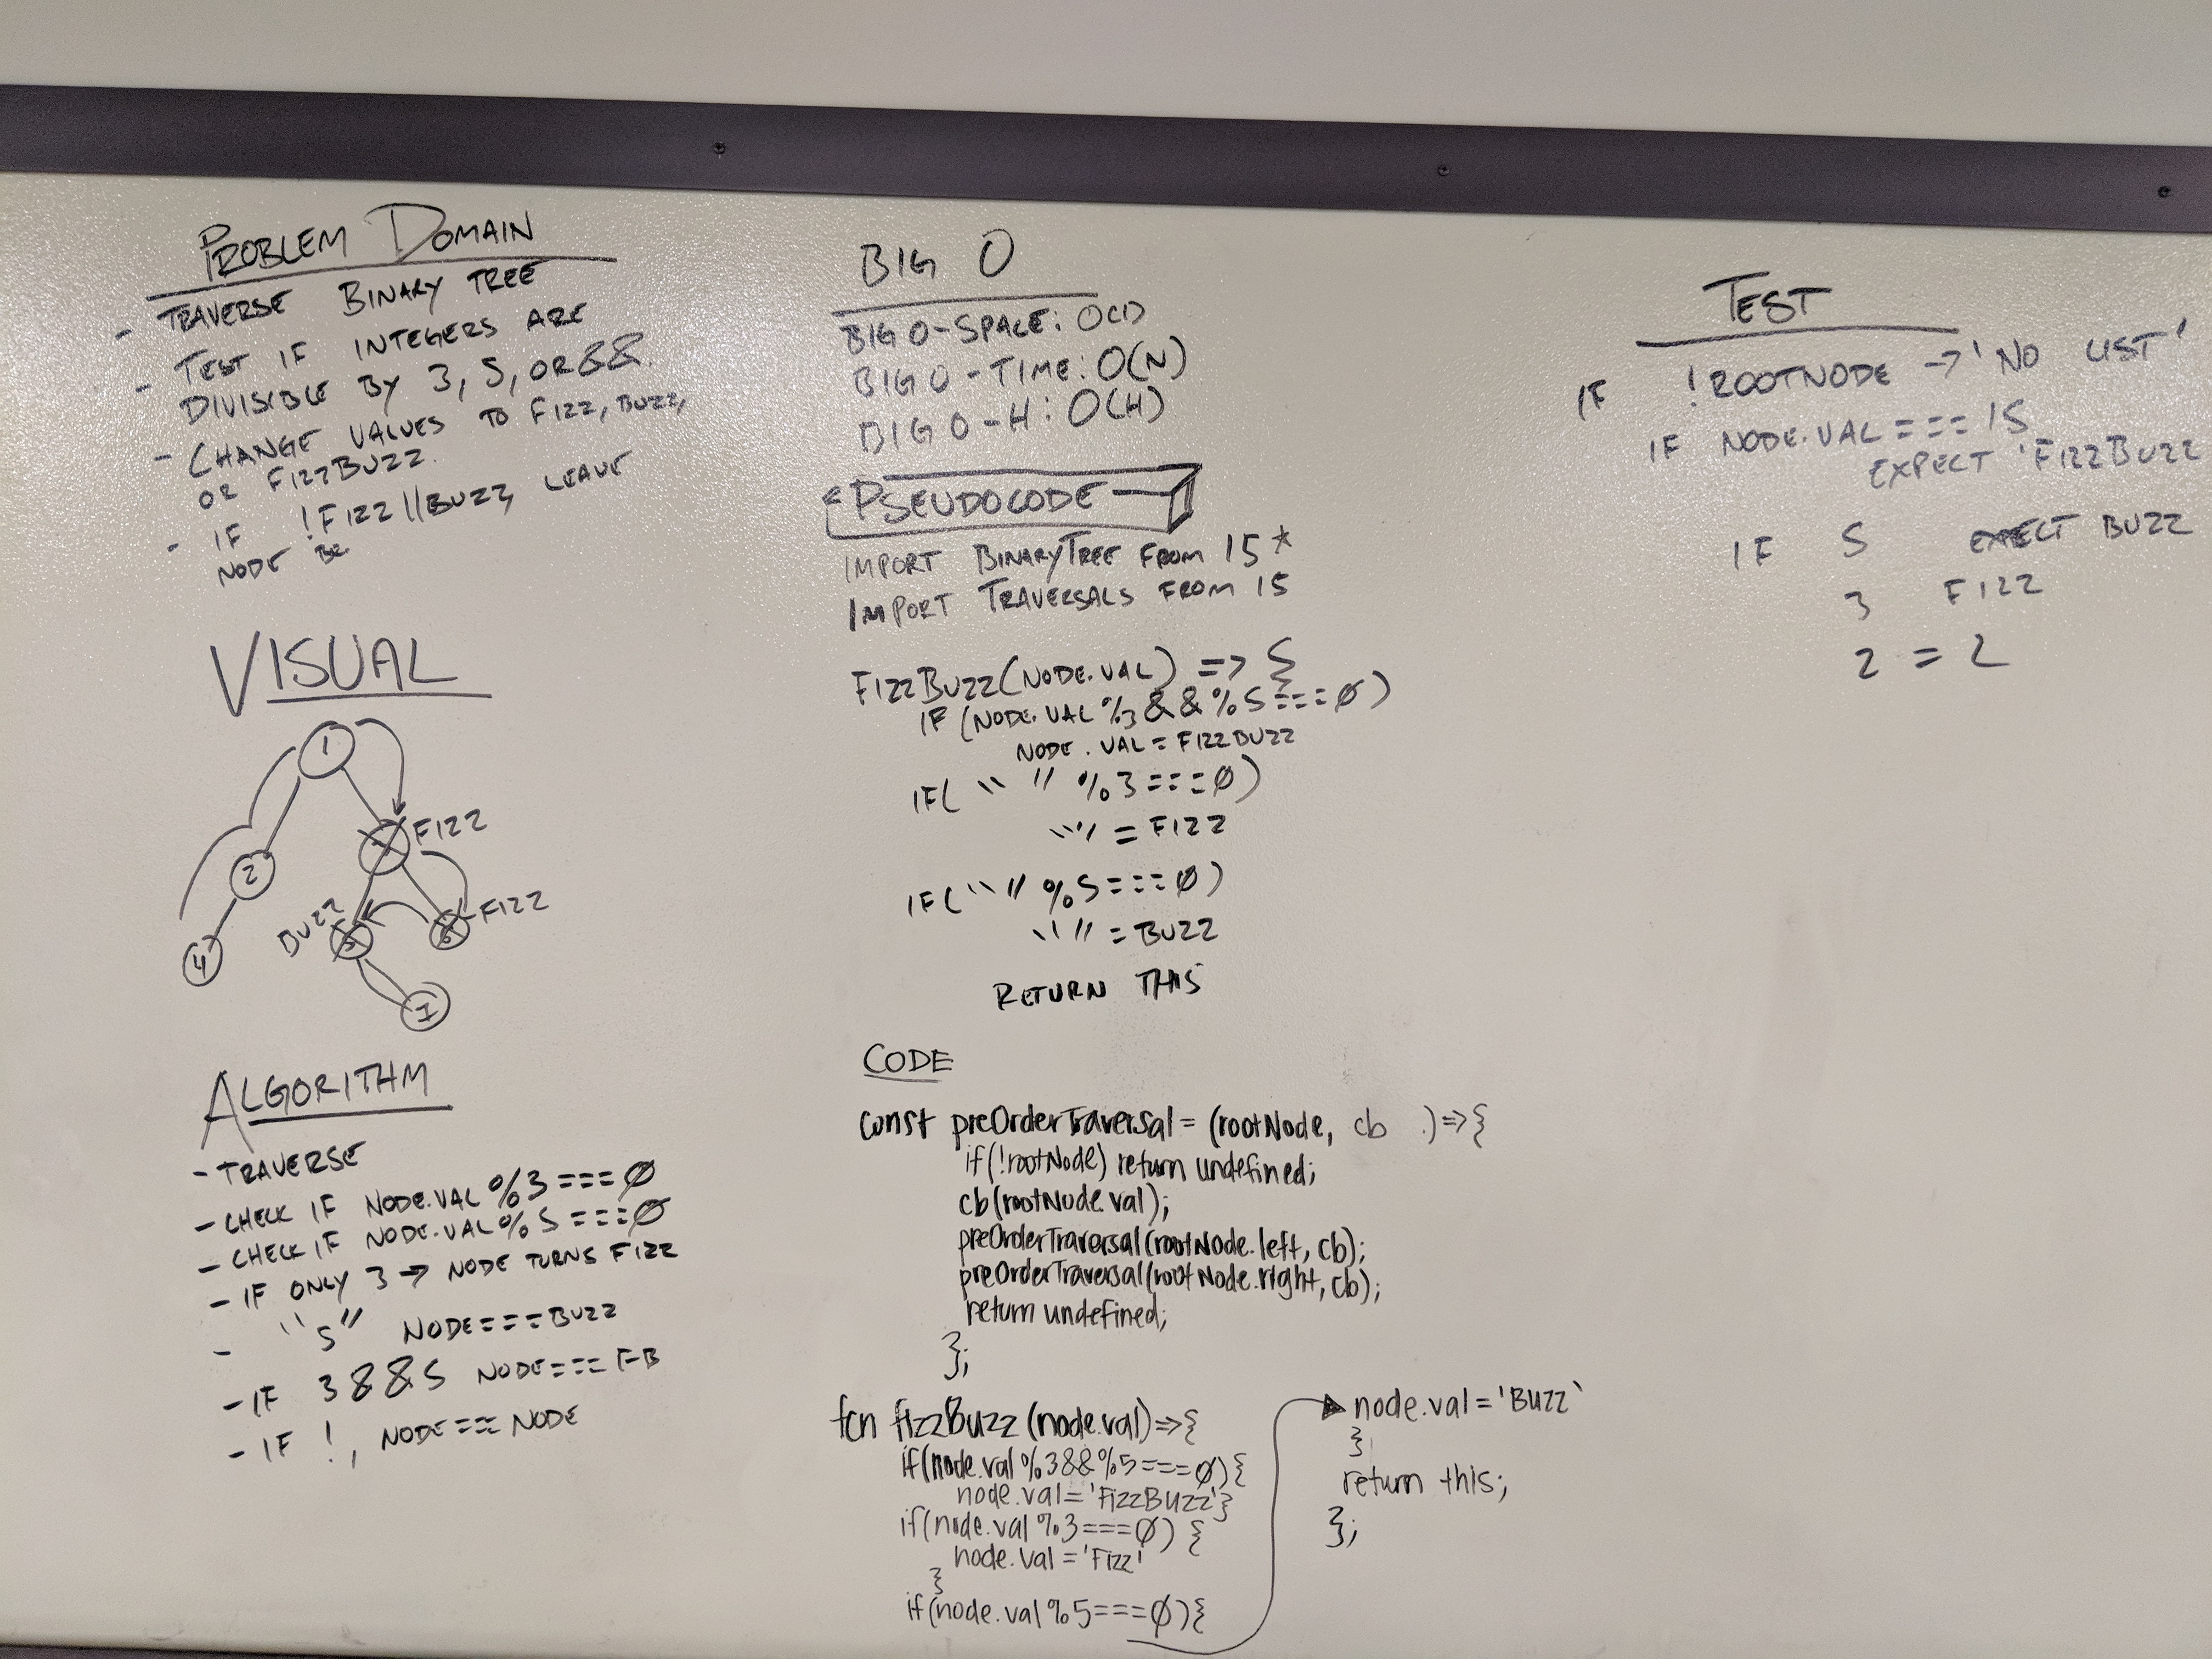 PROBLEM DOMAIN
- TRAVERSE BINARY TREE
- TEST IF INTEGERS ARE
DIVISIBLE BY 3, 5, OR &&.
- CHANGE VALUES TO FIZZ, BUZZ,
OR FIZZBUZZ.
- IF !FIZZ||BUZZ, LEAVE
NODE BE
VISUAL
1
FIZZ
2
BUZZ
5
6
FIZZ
4
7
ALGORITHM
- TRAVERSE
- CHECK IF NODE.VAL %3===0
- CHECK IF NODE.VAL % 5===0
- IF ONLY 3 → NODE TURNS FIZZ
- " 5" NODE===BUZZ
- IF 3&&5 NODE=== FB
- IF !, NODE=== NODE
BIG O
BIG O-SPACE: O(1)
BIG O-TIME: O(N)
BIG O-H: O(H)
PSEUDOCODE
IMPORT BINARYTREE FROM 15*
IMPORT TRAVERSALS FROM 15
FIZZBUZZ(NODE.VAL) => {
IF (NODE.VAL %3 && %5===0)
NODE.VAL = FIZZBUZZ
IF( " " %3===0)
" " = FIZZ
IF( " " %5===0)
" " = BUZZ
RETURN THIS
CODE
const preOrderTraversal = (rootNode, cb .)=>{
if(!rootNode) return undefined;
cb(rootNode.val);
preOrderTraversal(rootNode.left, cb);
preOrderTraversal(rootNode.right, cb);
return undefined;
};
fcn fizzBuzz (node.val)=>{
if(node.val %3&&%5===0){
node.val='FizzBuzz'}
if(node.val %3===0) {
node.val='Fizz'
}
if(node.val %5===0){
node.val='Buzz'
}
return this;
};
TEST
IF !ROOTNODE → 'NO LIST'
IF NODE.VAL === 15
EXPECT 'FIZZBUZZ
IF 5 EXPECT BUZZ
3 FIZZ
2 = 2